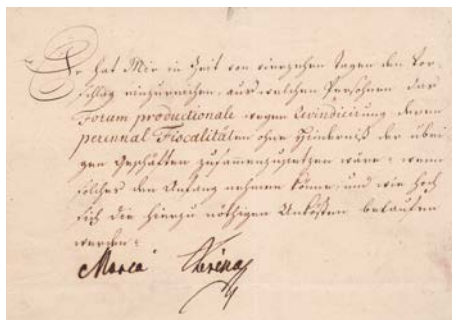 Er hat Mir in Zeit von vierzehen Tagen den Vor-
schlag einzureichen, aus welchen Persohnen das
Forum productionale wegen Revindicirung deren
perennal-Fiscalitäten ohne Hinderniß der übri-
gen Geschäften zusammenzusetzen wäre: wenn
solches den Anfang nehmen könne, und wie hoch
sich die hierzu nöthigen Unkösten belaufen
werden:
Maria Theresia